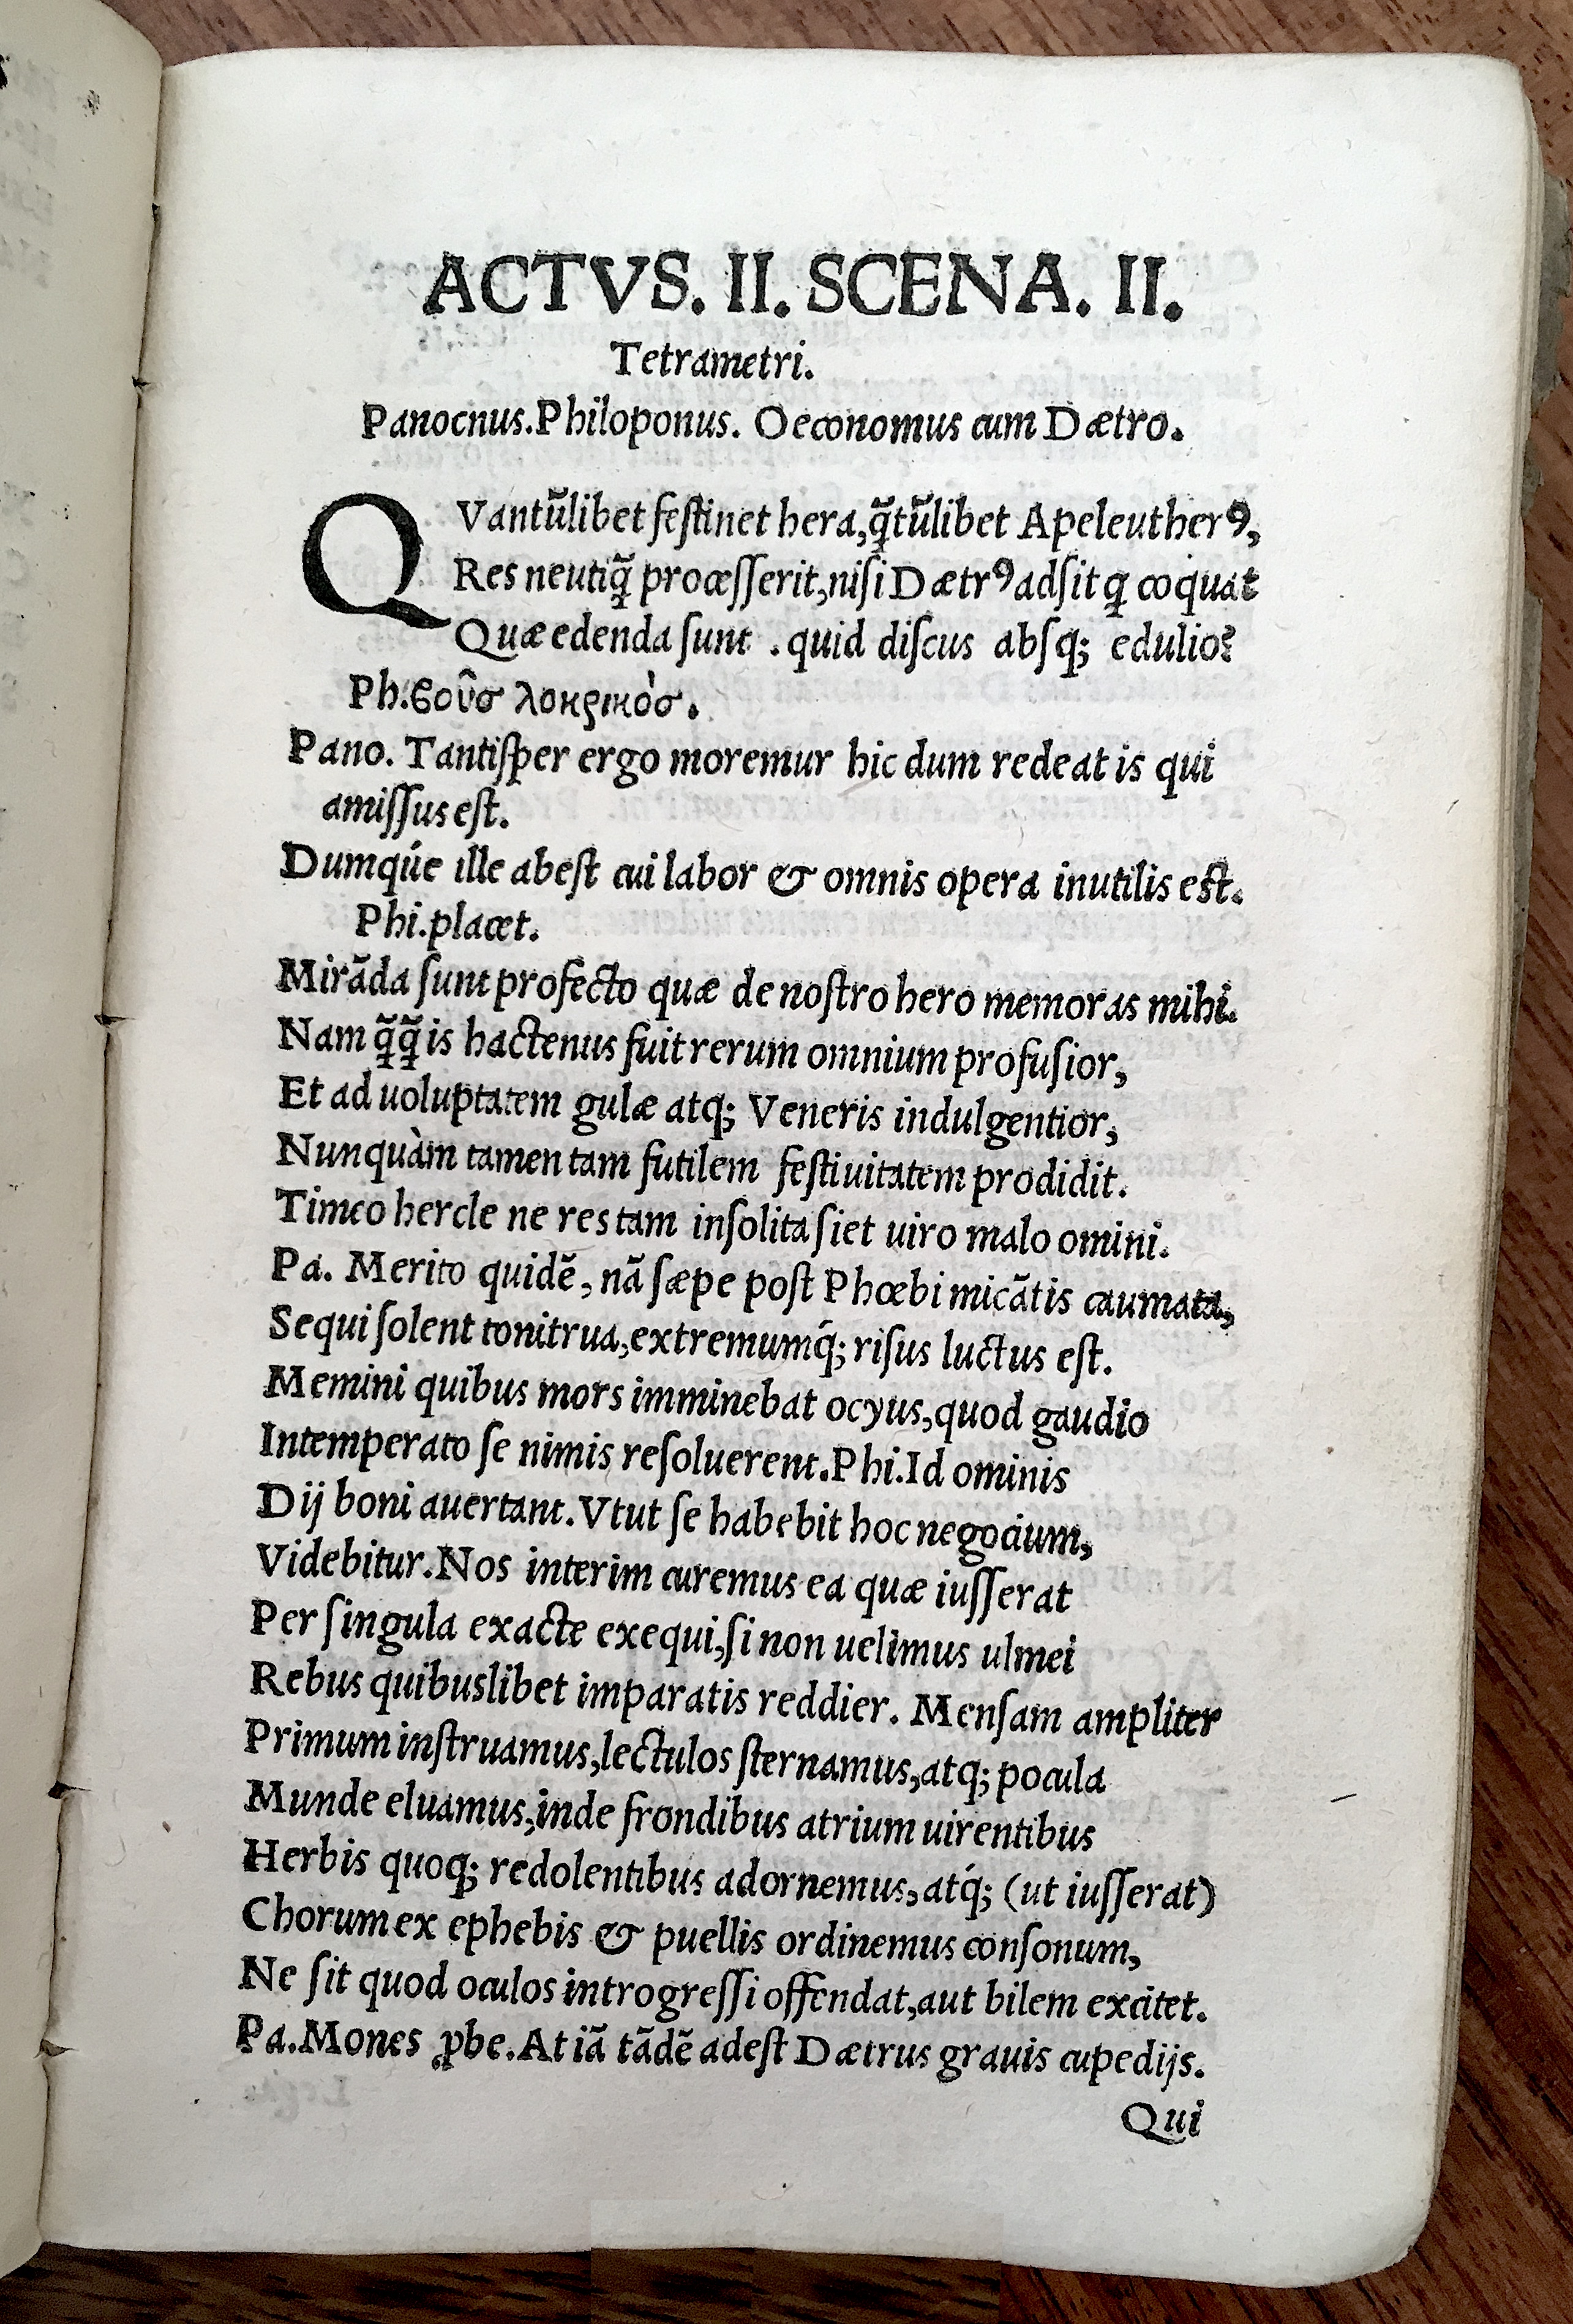 ACTVS. II. SCENA. II.
Tetrametri.
Panocnus. Philoponus. Oeconomus cum Dætro.
QVantũlibet festinet hera, q̃tũlibet Apeleutherꝰ,
Res neutiq̃ processerit, nisi Dætrꝰ adsit ꝗ coquat
Quæ edenda sunt . quid discus absq; edulio?
Ph. βοῦσ λοκρικὸσ.
Pano. Tantisper ergo moremur hic dum redeat is qui
amissus est.
Dumqúe ille abest cui labor & omnis opera inutilis est.
Phi. placet.
Mirãda sunt profecto quæ de nostro hero memoras mihi.
Nam q̃q̃ is hactenus fuit rerum omnium profusior,
Et ad uoluptatem gulæ atq; Veneris indulgentior,
Nunquàm tamen tam futilem festiuitatem prodidit.
Timeo hercle ne res tam insolita siet uiro malo omini.
Pa. Merito quidẽ, nã sæpe post Phœbi micãtis caumata,
Sequi solent tonitrua, extremumq́; risus luctus est.
Memini quibus mors imminebat ocyus, quod gaudio
Intemperato se nimis resoluerent. Phi. Id ominis
Dij boni auertant. Vtut se habebit hoc negocium,
Videbitur. Nos interim curemus ea quæ iusserat
Per singula exacte exequi, si non uelimus ulmei
Rebus quibuslibet imparatis reddier. Mensam ampliter
Primum instruamus, lectulos sternamus, atq; pocula
Munde eluamus, inde frondibus atrium uirentibus
Herbis quoq; redolentibus adornemus, atq́; (ut iusserat)
Chorum ex ephebis & puellis ordinemus consonum,
Ne sit quod oculos introgressi offendat, aut bilem excitet.
Pa. Mones ꝓbe. At iã tãdẽ adest Dætrus grauis cupedijs.
Qui